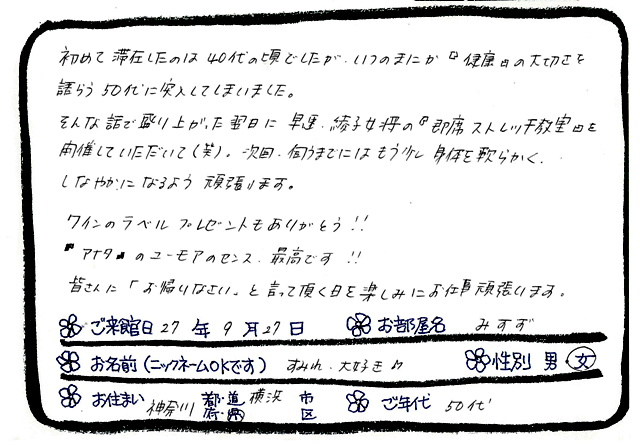 初めて滞在したのは40代の頃でしたが、いつのまにか『健康』の大切さを
語らう50代に突入してしまいました。
そんな話で盛り上がった翌日に早速、綾子女将の『即席ストレッチ教室』を
開催していただいて(笑)。次回、伺うまでにはもう少し身体を軟らかく、
しなやかになるよう頑張ります。
ワインのラベルプレゼントもありがとう!!
『アナタ』のユーモアのセンス、最高です!!
皆さんに「お帰りなさい」と言って頂く日を楽しみにお仕事頑張います。
ご来館日 27 年 9 月 27 日 お部屋名 みすず
お名前(ニックネームOKです) すみれ、大好き♪ 性別 男 女
お住まい 神奈川 都道府県 横浜 市区 ご年代 50代